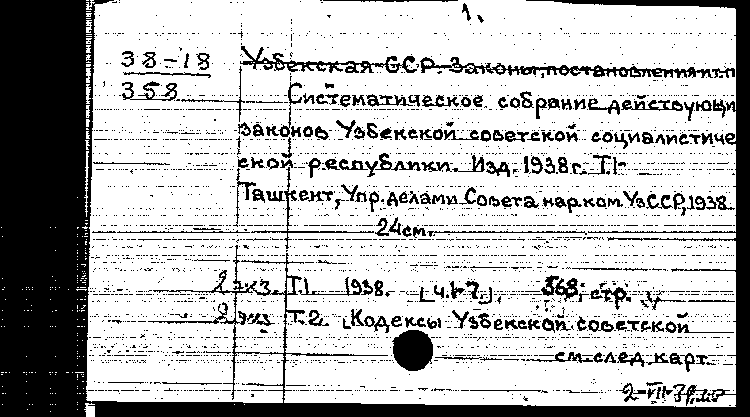 1.
38-18 Узбекская ССР. Законы, постановления и т.п
358 Систематическое собрание действующи
законов Узбекской советской социалистиче
ской республики. Изд. 1938 г. Т.1-
Ташкент, Упр. делами Совета нар.ком. УзССР, 1938.
24 см.
2 экз. Т.1. 1938. [ч.1-7]. 368; стр.
2 экз Т.2. [Кодексы Узбекской советской
см. след. карт.
2-VII-39